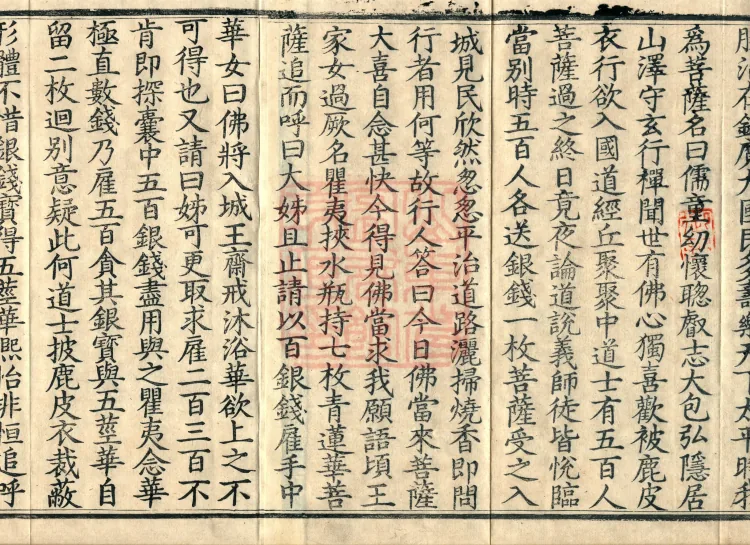 勝治在鉢摩大國民多壽樂天下太平時我
為菩薩名曰儒童幼懷聰叡志大包弘隱居
山澤守玄行禪聞世有佛心獨喜歡被鹿皮
衣行欲入國道經丘聚聚中道士有五百人
菩薩過之終日竟夜論道說義師徒皆悅臨
當別時五百人各送銀錢一枚菩薩受之入
城見民欣然怱怱平治道路灑掃燒香即問
行者用何等故行人答曰今日佛當來菩薩
大喜自念甚快今得見佛當求我願語頃王
家女過厥名瞿夷挾水瓶持七枚青蓮華菩
薩追而呼曰大姊且止請以百銀錢雇手中
華女曰佛將入城王齋戒沐浴華欲上之不
可得也又請曰姊可更取求雇二百三百不
肯即探囊中五百銀錢盡用與之瞿夷念華
極直數錢乃雇五百貪其銀寶與五莖華自
留二枚迴別意疑此何道士披鹿皮衣裁蔽
形體不惜銀錢寶得五莖華熈怡非恒追呼